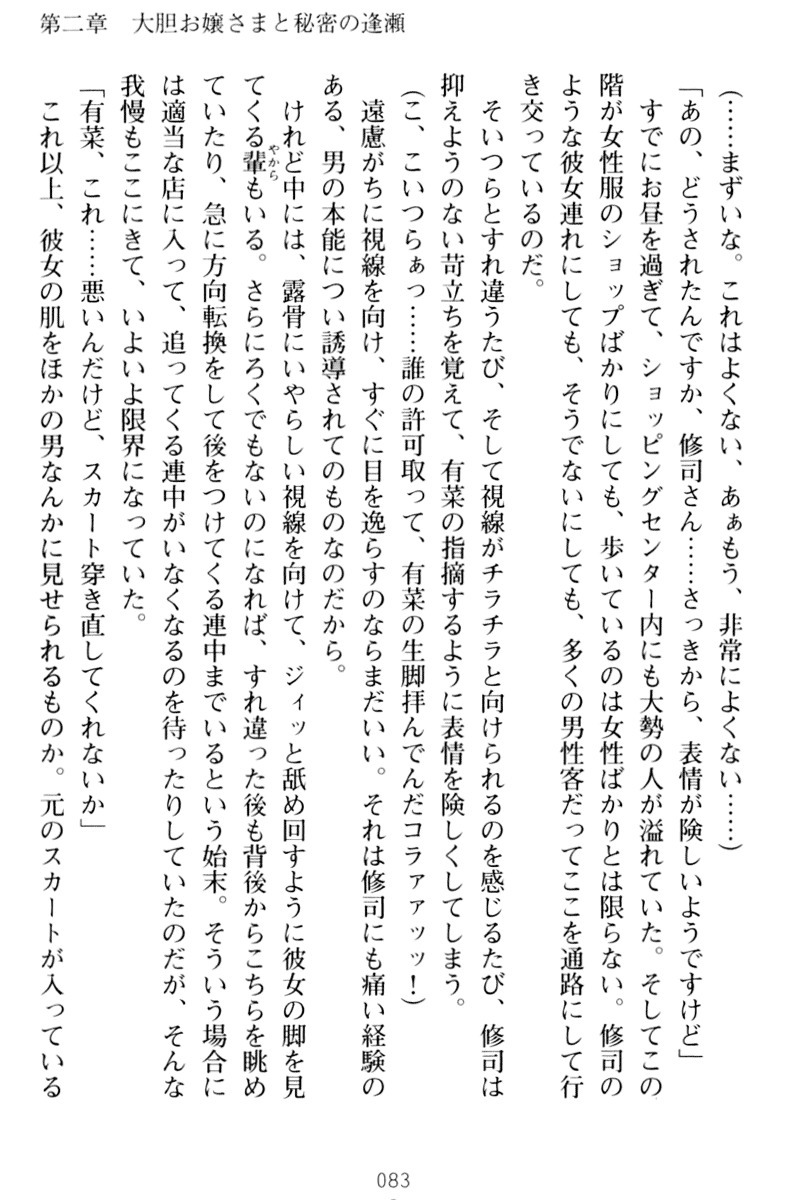 第二章　大胆お嬢さまと秘密の逢瀬
(……まずいな。これはよくない、あぁもう、非常によくない……)
「あの、どうされたんですか、修司さん……さっきから、表情が険しいようですけど」
すでにお昼を過ぎて、ショッピングセンター内にも大勢の人が溢れていた。そしてこの
階が女性服のショップばかりにしても、歩いているのは女性ばかりとは限らない。修司の
ような彼女連れにしても、そうでないにしても、多くの男性客だってここを通路にして行
き交っているのだ。
そいつらとすれ違うたび、そして視線がチラチラと向けられるのを感じるたび、修司は
抑えようのない苛立ちを覚えて、有菜の指摘するように表情を険しくしてしまう。
(こ、こいつらぁっ……誰の許可取って、有菜の生脚拝んでんだコラァァッッ！)
遠慮がちに視線を向け、すぐに目を逸らすのならまだいい。それは修司にも痛い経験の
ある、男の本能につい誘導されてのものなのだから。
けれど中には、露骨にいやらしい視線を向けて、ジィッと舐め回すように彼女の脚を見
てくる輩もいる。さらにろくでもないのになれば、すれ違った後も背後からこちらを眺め
やから
ていたり、急に方向転換をして後をつけてくる連中までいるという始末。そういう場合に
は適当な店に入って、追ってくる連中がいなくなるのを待ったりしていたのだが、そんな
我慢もここにきて、いよいよ限界になっていた。
「有菜、これ……悪いんだけど、スカート穿き直してくれないか」
これ以上、彼女の肌をほかの男なんかに見せられるものか。元のスカートが入っている
083